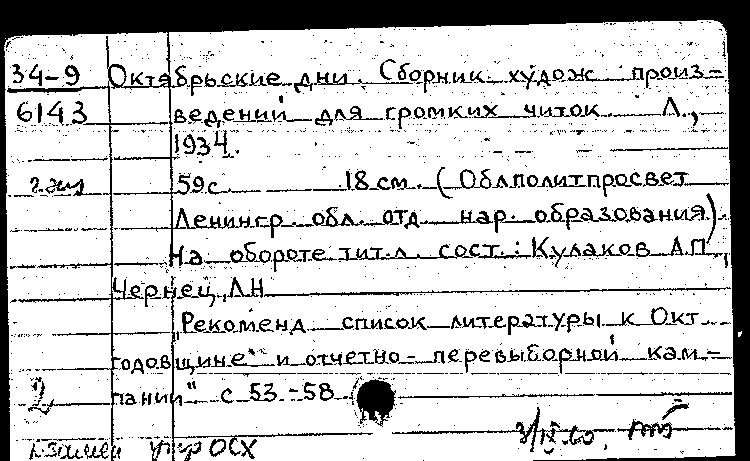 34-9 Октябрьские дни. Сборник худож произ-
6143 ведений для громких читок Л.,
1934.
59с 18 см. (Облполитпросвет
Ленингр обл. отд нар. образования).
На обороте тит.л. сост.: Кулаков А.П.,
Чернец, Л.Н
"Рекоменд список литературы к Окт
годовщине" и отчетно-перевыборной кам-
2 пании" с 53-58
3/IX.60,
ОСХ